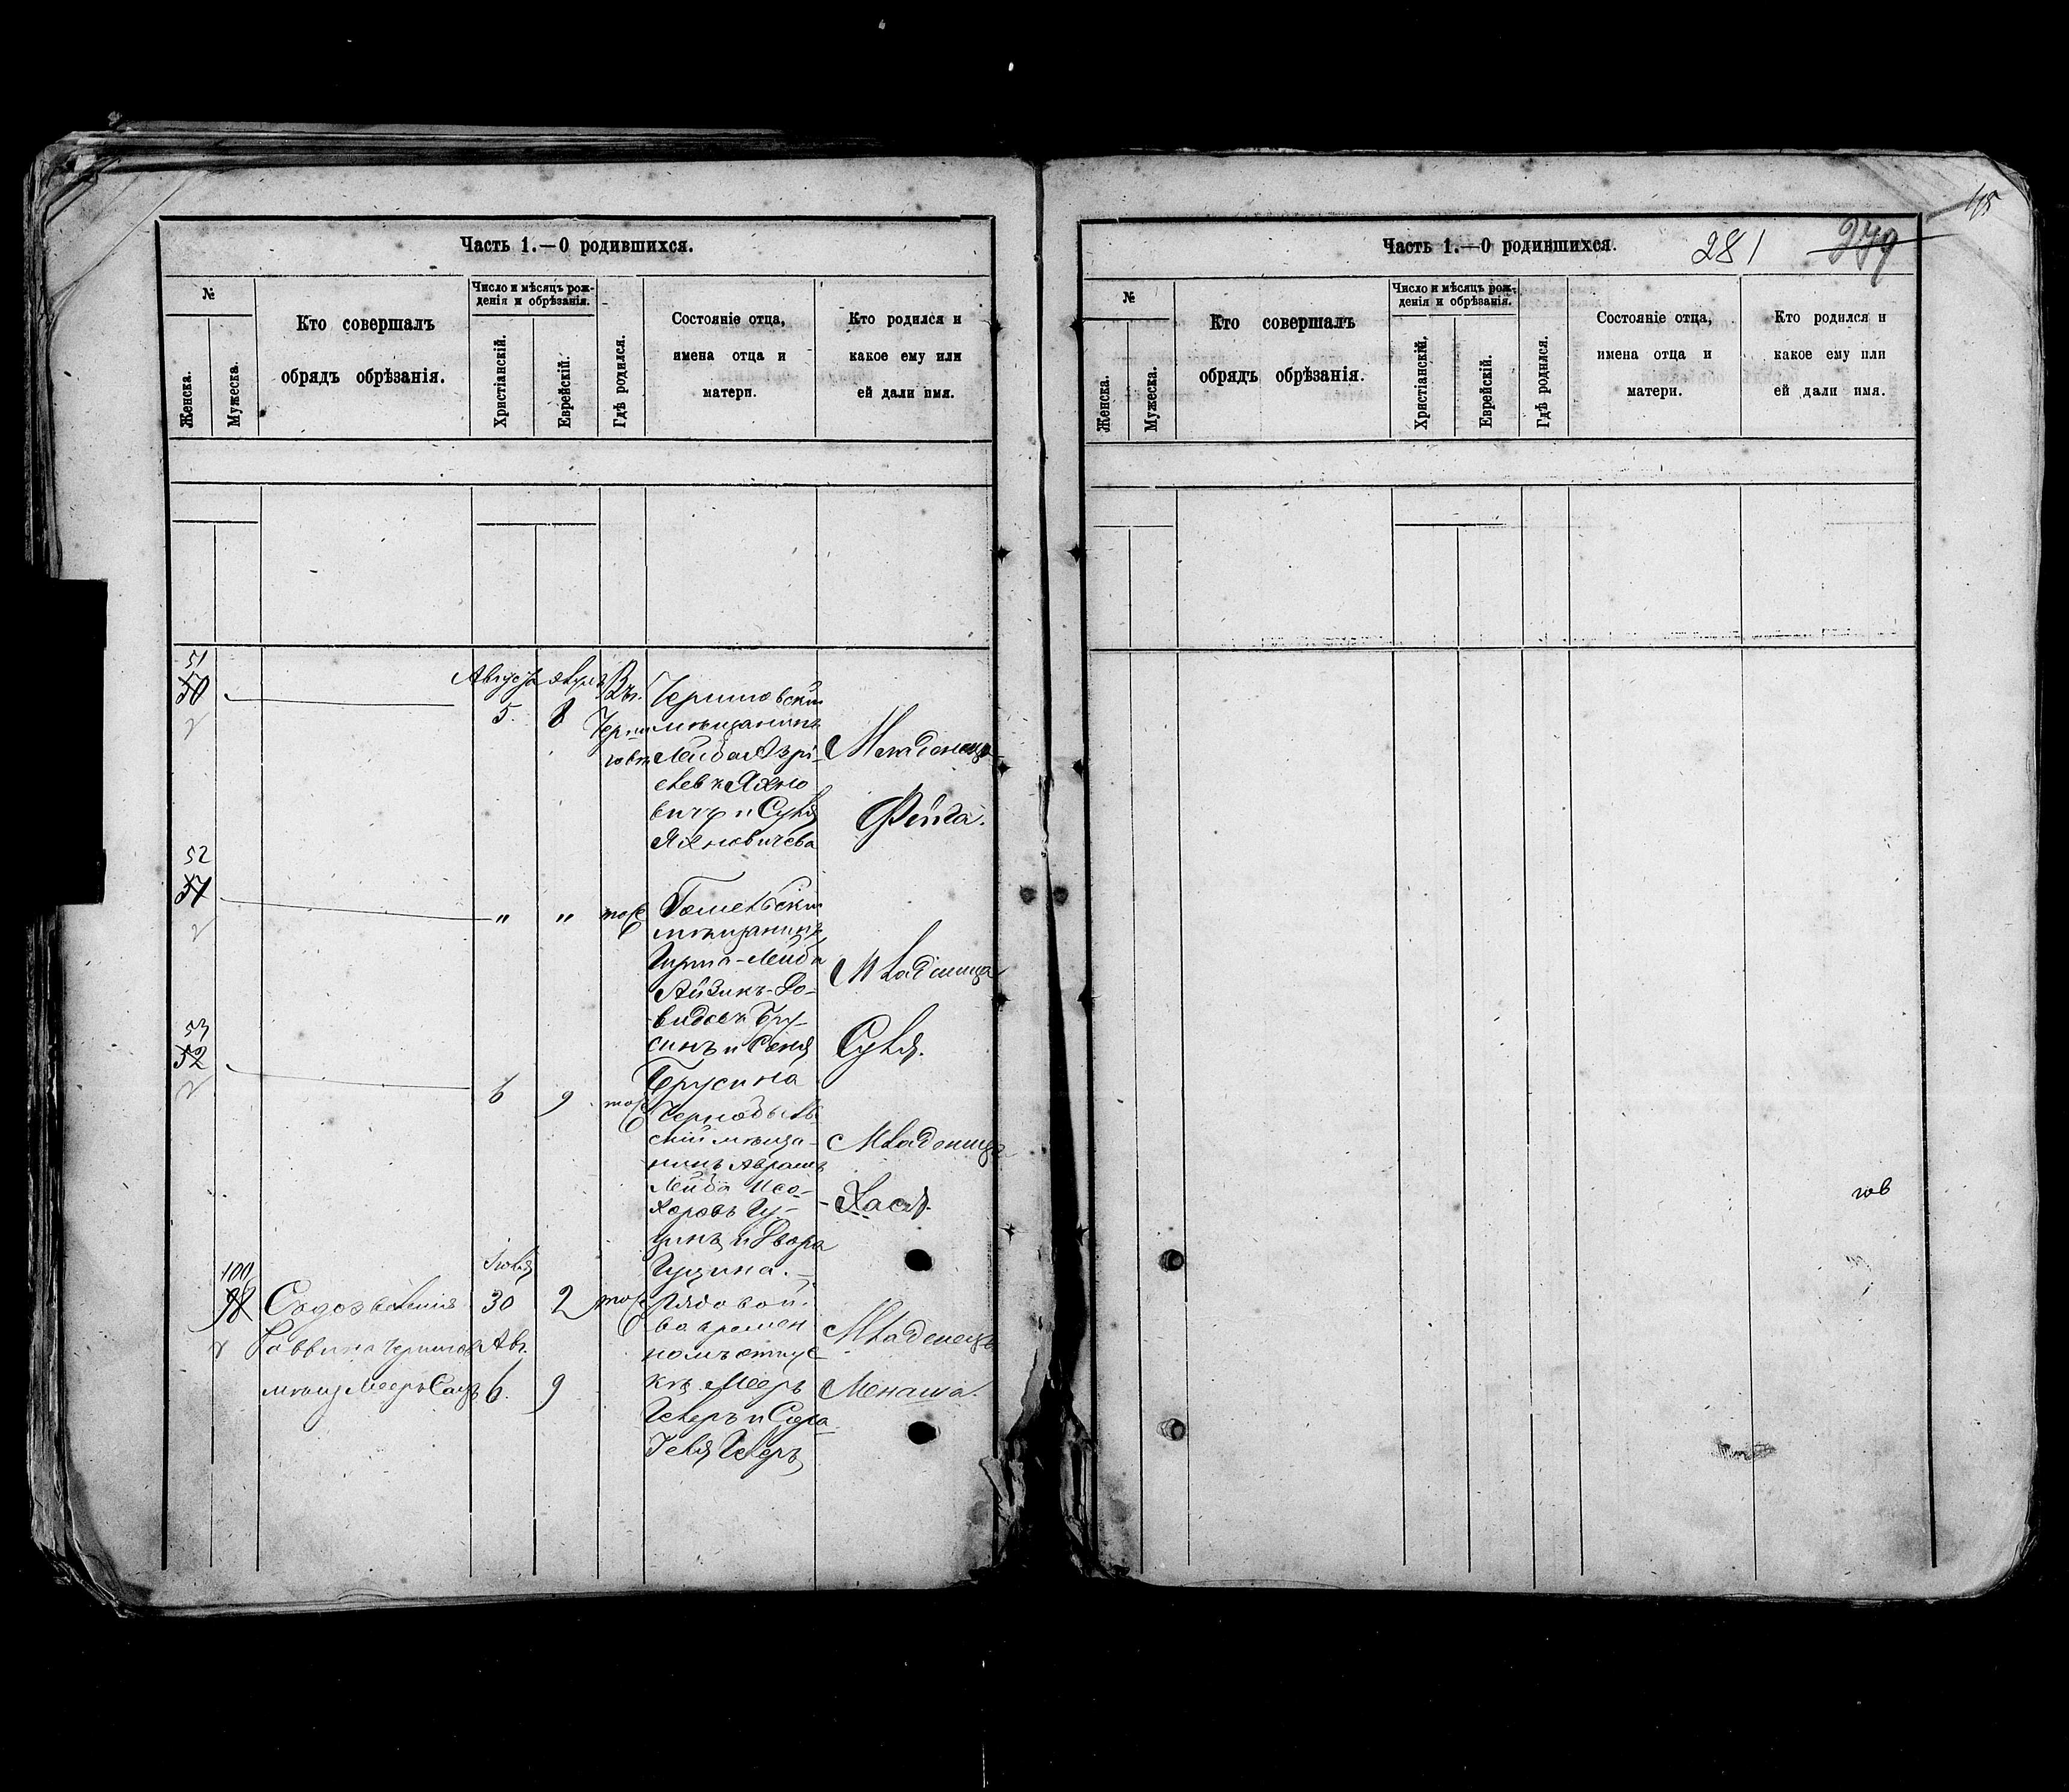 Часть 1.—О родившихся.
№
Женска.
Мужеска.
Кто совершалъ
обрядъ обрѣзанія.
Число и мѣсяцъ рож-
денія и обрѣзанія.
Христіанскій.
Еврейскій.
Гдѣ родился.
Состояніе отца,
имена отца и
матери.
Кто родился и
какое ему или
ей дали имя.
51
50
Августа
5.
8
Въ
Черни
говѣ
Черниговскій
мѣщанинъ
Лейба Азрі-
елевъ Яхно
вичъ и Суля
Яхновичева
Младенецъ
Фейга.
52
51
"
"
тоже
Гомельскій
мѣщанинъ
Гирша-Лейба
Айзикъ-До-
видовъ Бру-
синъ и Сеня
Брусина
Младеница
Суля.
53
52
6
9
тоже
Чернобыль
скій мѣща-
нинъ Авраамъ
Лейба Исо-
хоровъ Гу-
щинъ и Двора
Гущина.
Младеница
Хася.
100
98
Съ дозволенія
Раввина чернигов
мѣщ Мееръ Сацъ
Іюля
30
2
Авг.
6.
9
тоже
Рядовой
во времен
номъ отпус
кѣ Мееръ
Геллеръ и Сора
Геля Геллеръ
Младенецъ
Менаша.
Часть 1.—О родившихся.
281
279
№
Женска.
Мужеска.
Кто совершалъ
обрядъ обрѣзанія.
Число и мѣсяцъ рож-
денія и обрѣзанія.
Христіанскій.
Еврейскій.
Гдѣ родился.
Состояніе отца,
имена отца и
матери.
Кто родился и
какое ему или
ей дали имя.